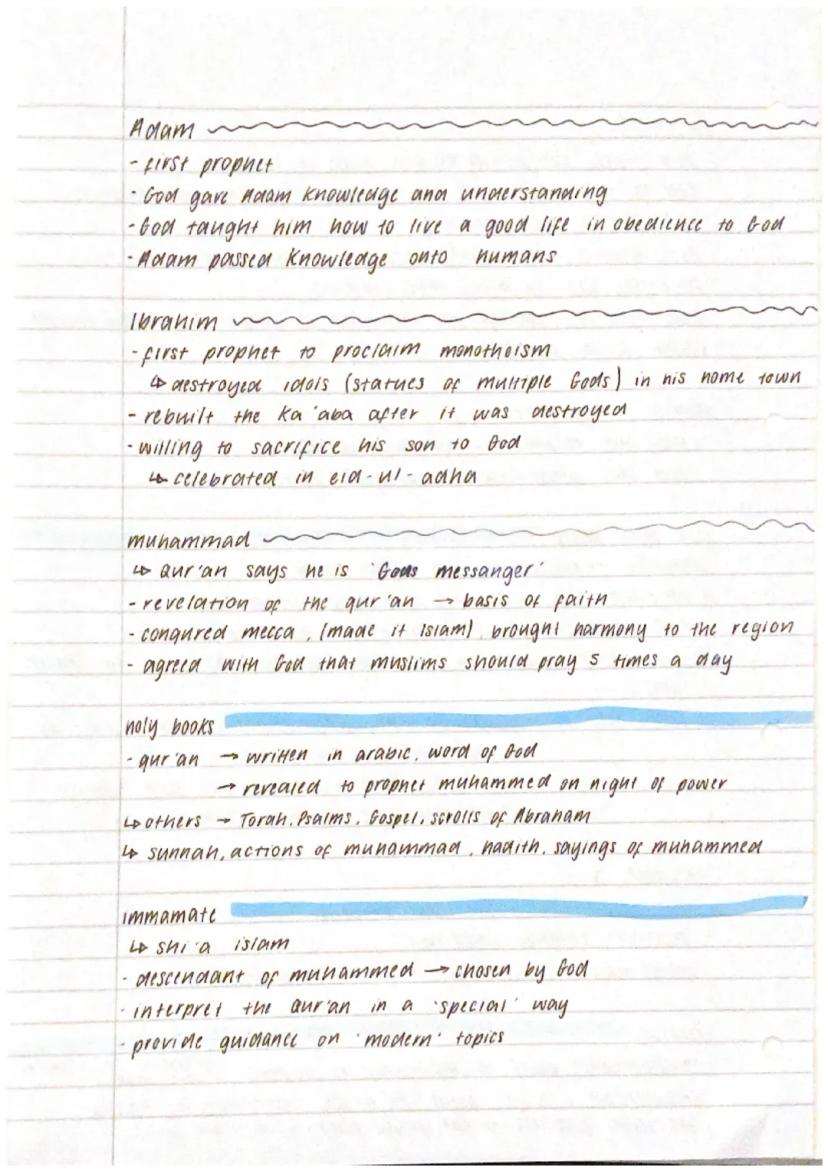 Adam
- first prophet
- God gave Adam knowledge and understanding
- God taught him how to live a good life in obedience to God
- Adam passed knowledge onto humans
Ibrahim
- first prophet to proclaim monotheism
↳ destroyed idols (statues of multiple Gods) in his home town
- rebuilt the Ka'aba after it was destroyed
- willing to sacrifice his son to God
↳ celebrated in eid-ul-adha
muhammad
↳ Qur'an says he is 'Gods messanger'
- revelation of the qur'an → basis of faith
- conqured mecca, (made it Islam), brought harmony to the region
- agreed with God that muslims should pray 5 times a day
holy books
- qur'an → written in arabic, word of God
→ revealed to prophet muhammed on night of power
↳ others → Torah, Psalms, Gospel, scrolls of Abraham
↳ sunnah, actions of muhammad, hadith, sayings of muhammed
immamate
↳ shi'a islam
- descendant of muhammed → chosen by God
- interpret the Qur'an in a 'special' way
- provide guidance on 'modern' topics